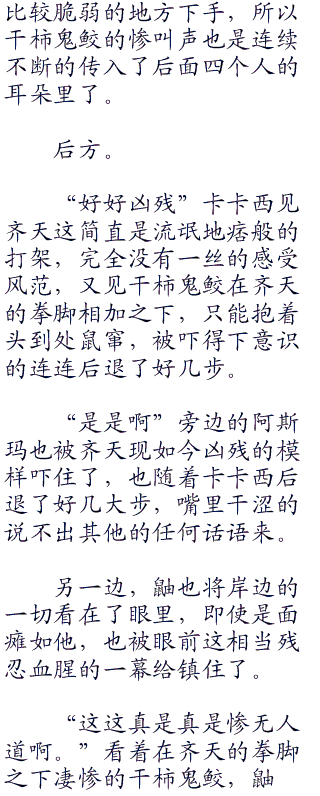 比较脆弱的地方下手，所以
干柿鬼鲛的惨叫声也是连续
不断的传入了后面四个人的
耳朵里了。
后方。
“好好凶残”卡卡西见
齐天这简直是流氓地痞般的
打架，完全没有一丝的感受
风范，又见干柿鬼鲛在齐天
的拳脚相加之下，只能抱着
头到处鼠窜，被吓得下意识
的连连后退了好几步。
“是是啊”旁边的阿斯
玛也被齐天现如今凶残的模
样吓住了，也随着卡卡西后
退了好几大步，嘴里干涩的
说不出其他的任何话语来。
另一边，鼬也将岸边的
一切看在了眼里，即使是面
瘫如他，也被眼前这相当残
忍血腥的一幕给镇住了。
“这这真是真是惨无人
道啊。”看着在齐天的拳脚
之下凄惨的干柿鬼鲛，鼬